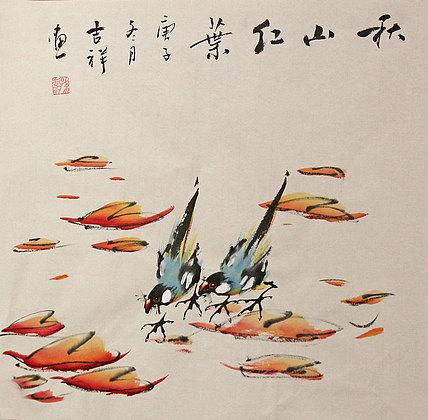 秋山红葉
庚子
冬月
吉祥
画